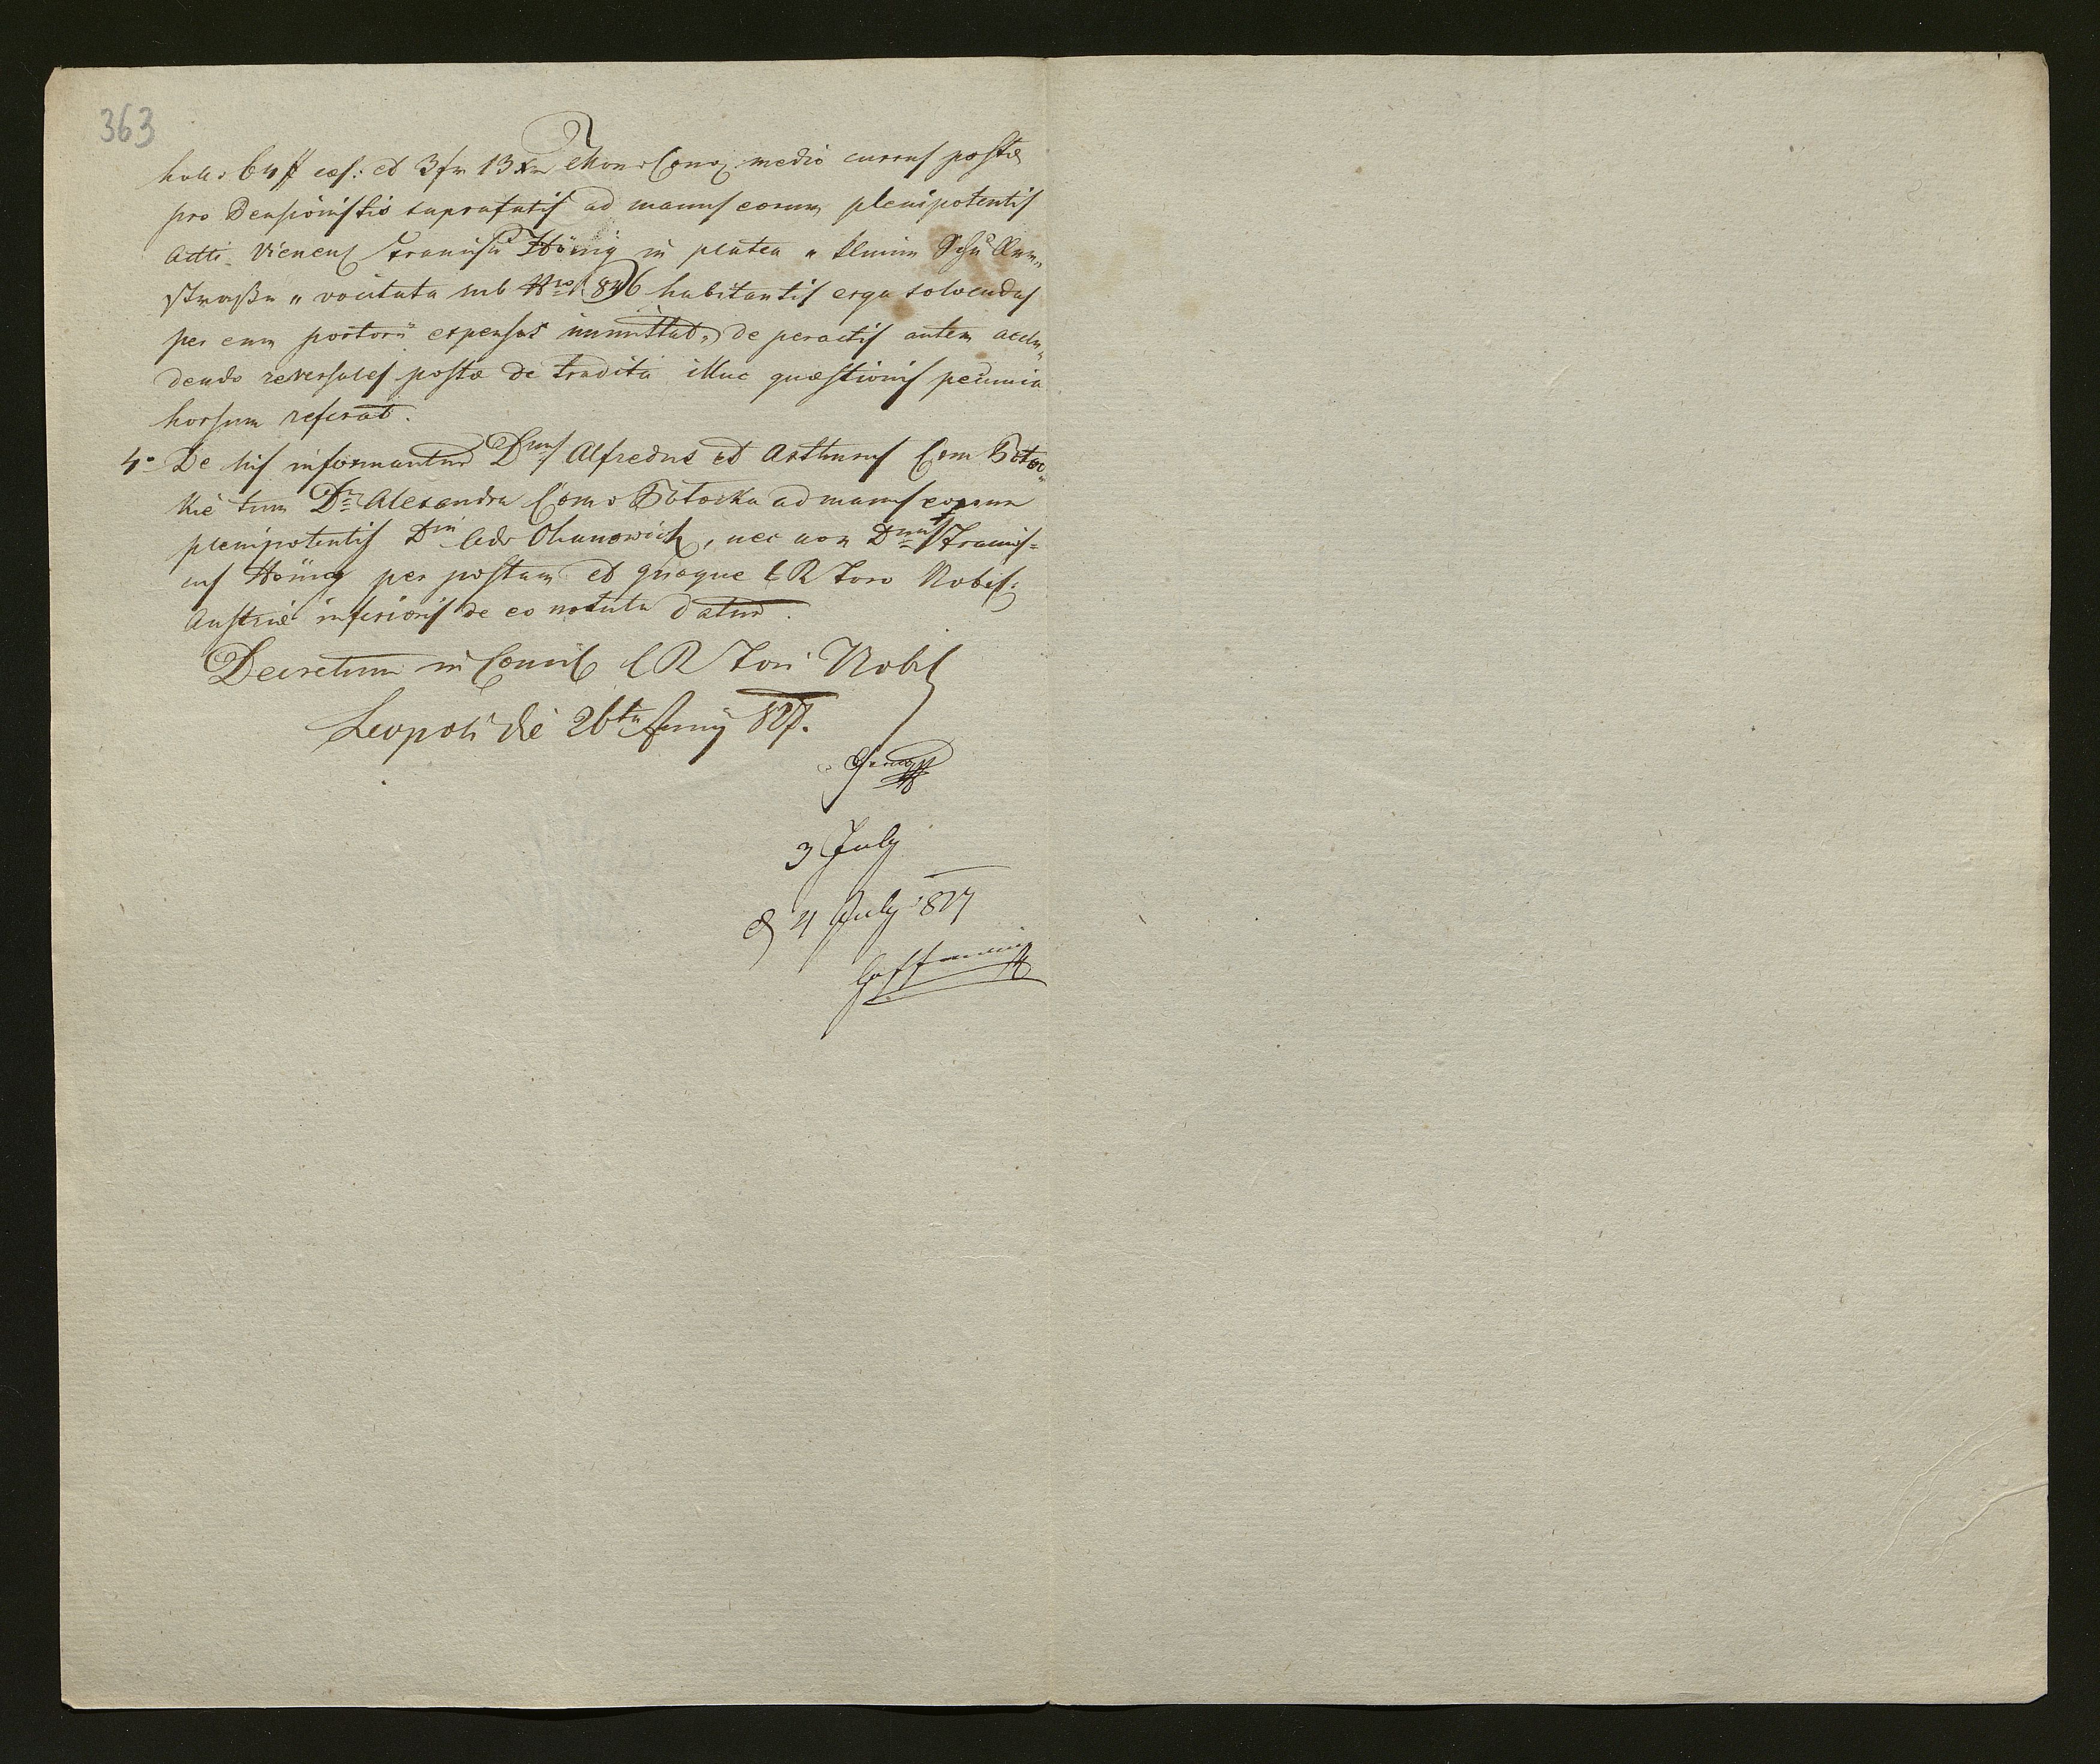 363
holl. 64 # cæs: et 3 fr 13 xr Mon. Conv. medio cursus postæ
pro Depsionistis suprafatis ad manus eorum plenipotentis
Adti Vienens Francisci Hönig in platea „ kleine Schuller„
strasse „ vocitata sub Nro 846 habitantis erga solvendas
per eum portorii expensas immittat, de peractis autem acclu„
dendo reversales postæ de tradita illuc quæstionis pecunia
horsum referat.
4o De his informantur Dnus Alfredus et Arthurus Com Potoc„
kie tum Dna Alexandra Com. Potocka ad manus eorum
plenipotentis Dni Adv Ohanowicz, nec non Dnus Francis=
cus Hönig per postam et quoque C R Foro Nobil:
Austriæ inferioris de eo notitia datur.
Decretum in Consil C R Fori Nobil
Leopoli die 26ta Juny 827.
3 July
4 July 827
Hoffmann